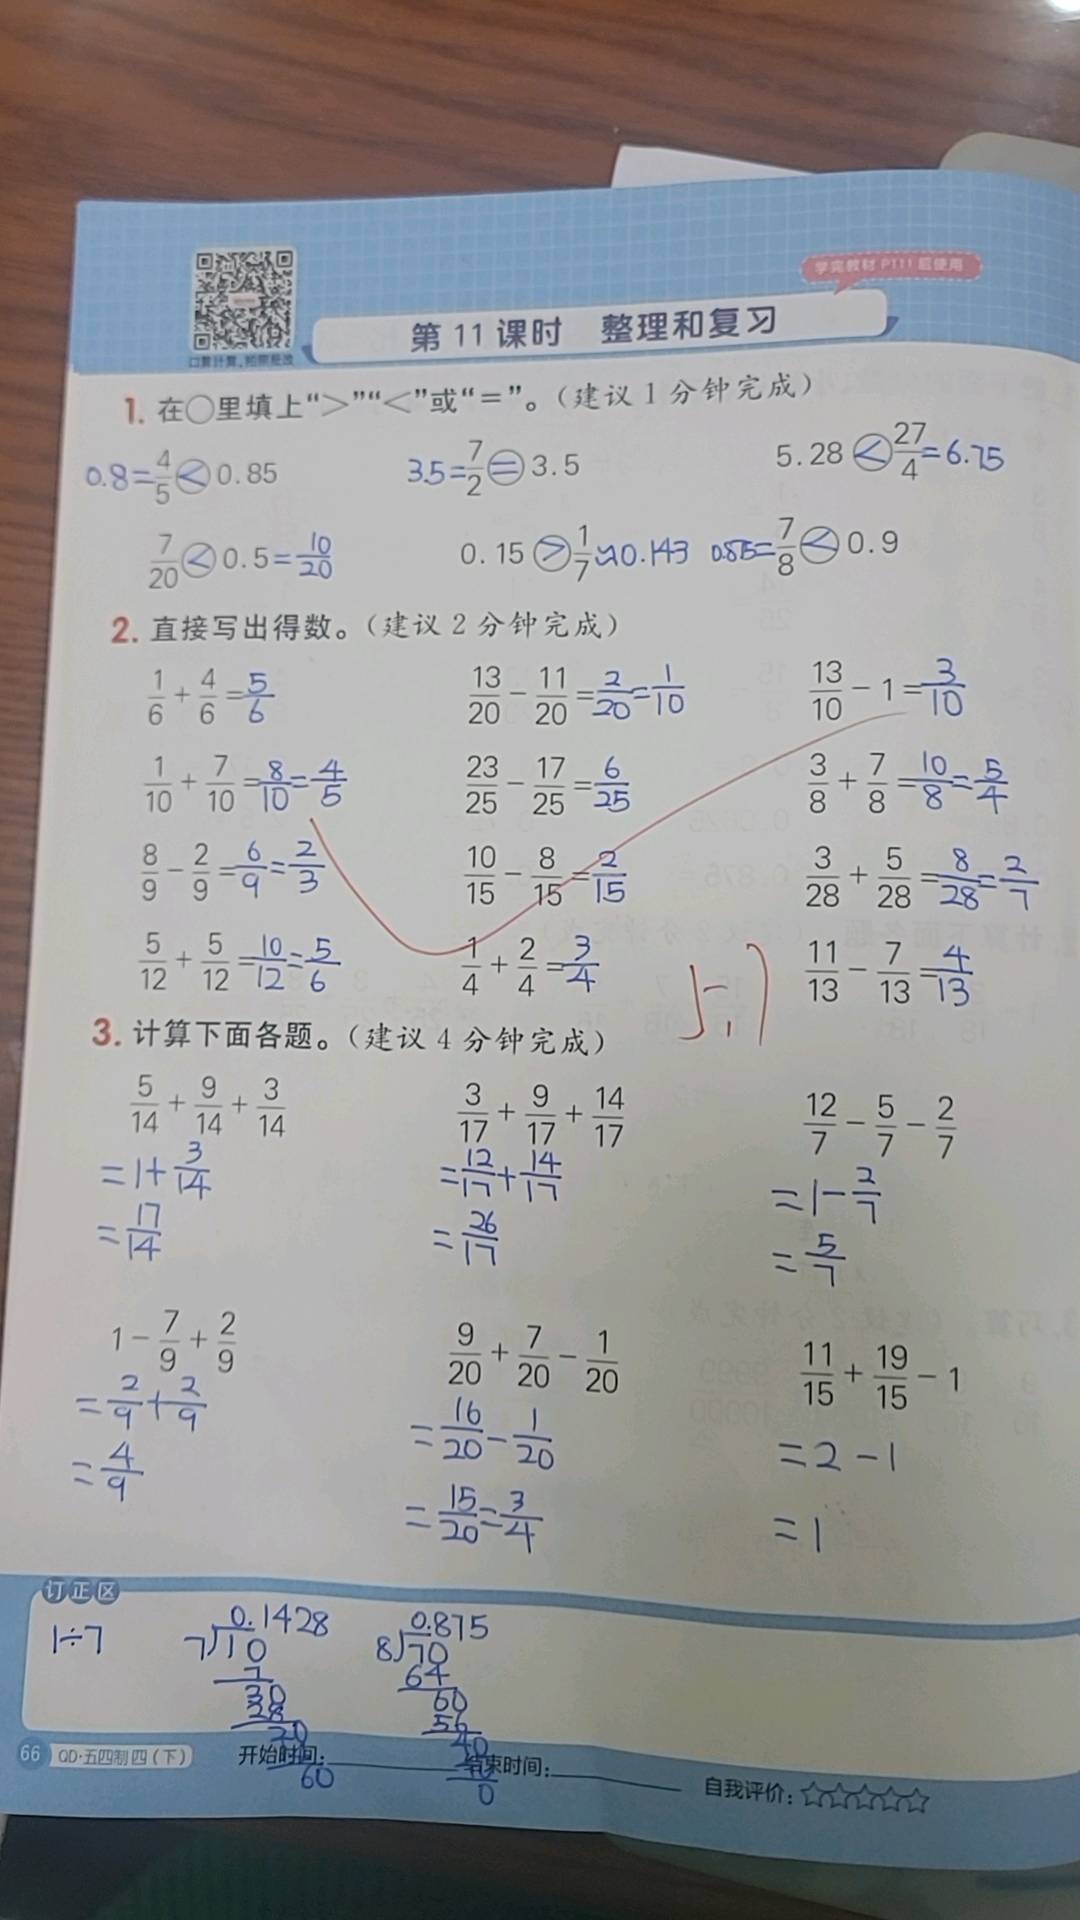 学完教材 P111 后使用
口算计算,拍照批改
第 11 课时 整理和复习
1. 在○里填上“>”“<”或“=”。(建议 1 分钟完成)
0.8=4/5 < 0.85 3.5=7/2 = 3.5 5.28 < 27/4=6.75
7/20 < 0.5=10/20 0.15 > 1/7≈0.143 0.875=7/8 < 0.9
2. 直接写出得数。(建议 2 分钟完成)
1/6 + 4/6 =5/6 13/20 - 11/20 =2/20=1/10 13/10 - 1 =3/10
1/10 + 7/10 =8/10=4/5 23/25 - 17/25 =6/25 3/8 + 7/8 =10/8=5/4
8/9 - 2/9 =6/9=2/3 10/15 - 8/15 =2/15 3/28 + 5/28 =8/28=2/7
5/12 + 5/12 =10/12=5/6 1/4 + 2/4 =3/4 11/13 - 7/13 =4/13
5.17
3. 计算下面各题。(建议 4 分钟完成)
5/14 + 9/14 + 3/14 3/17 + 9/17 + 14/17 12/7 - 5/7 - 2/7
=1+3/14 =12/17+14/17 =1-2/7
=17/14 =26/17 =5/7
1 - 7/9 + 2/9 9/20 + 7/20 - 1/20 11/15 + 19/15 - 1
=2/9+2/9 =16/20-1/20 =2-1
=4/9 =15/20=3/4 =1
订正区
0.1428 0.875
1÷7 7)10 8)70
7 64
30 60
28 56
20 40
60 0
66 QD·五四制四(下) 开始时间: 结束时间: 自我评价:☆☆☆☆☆